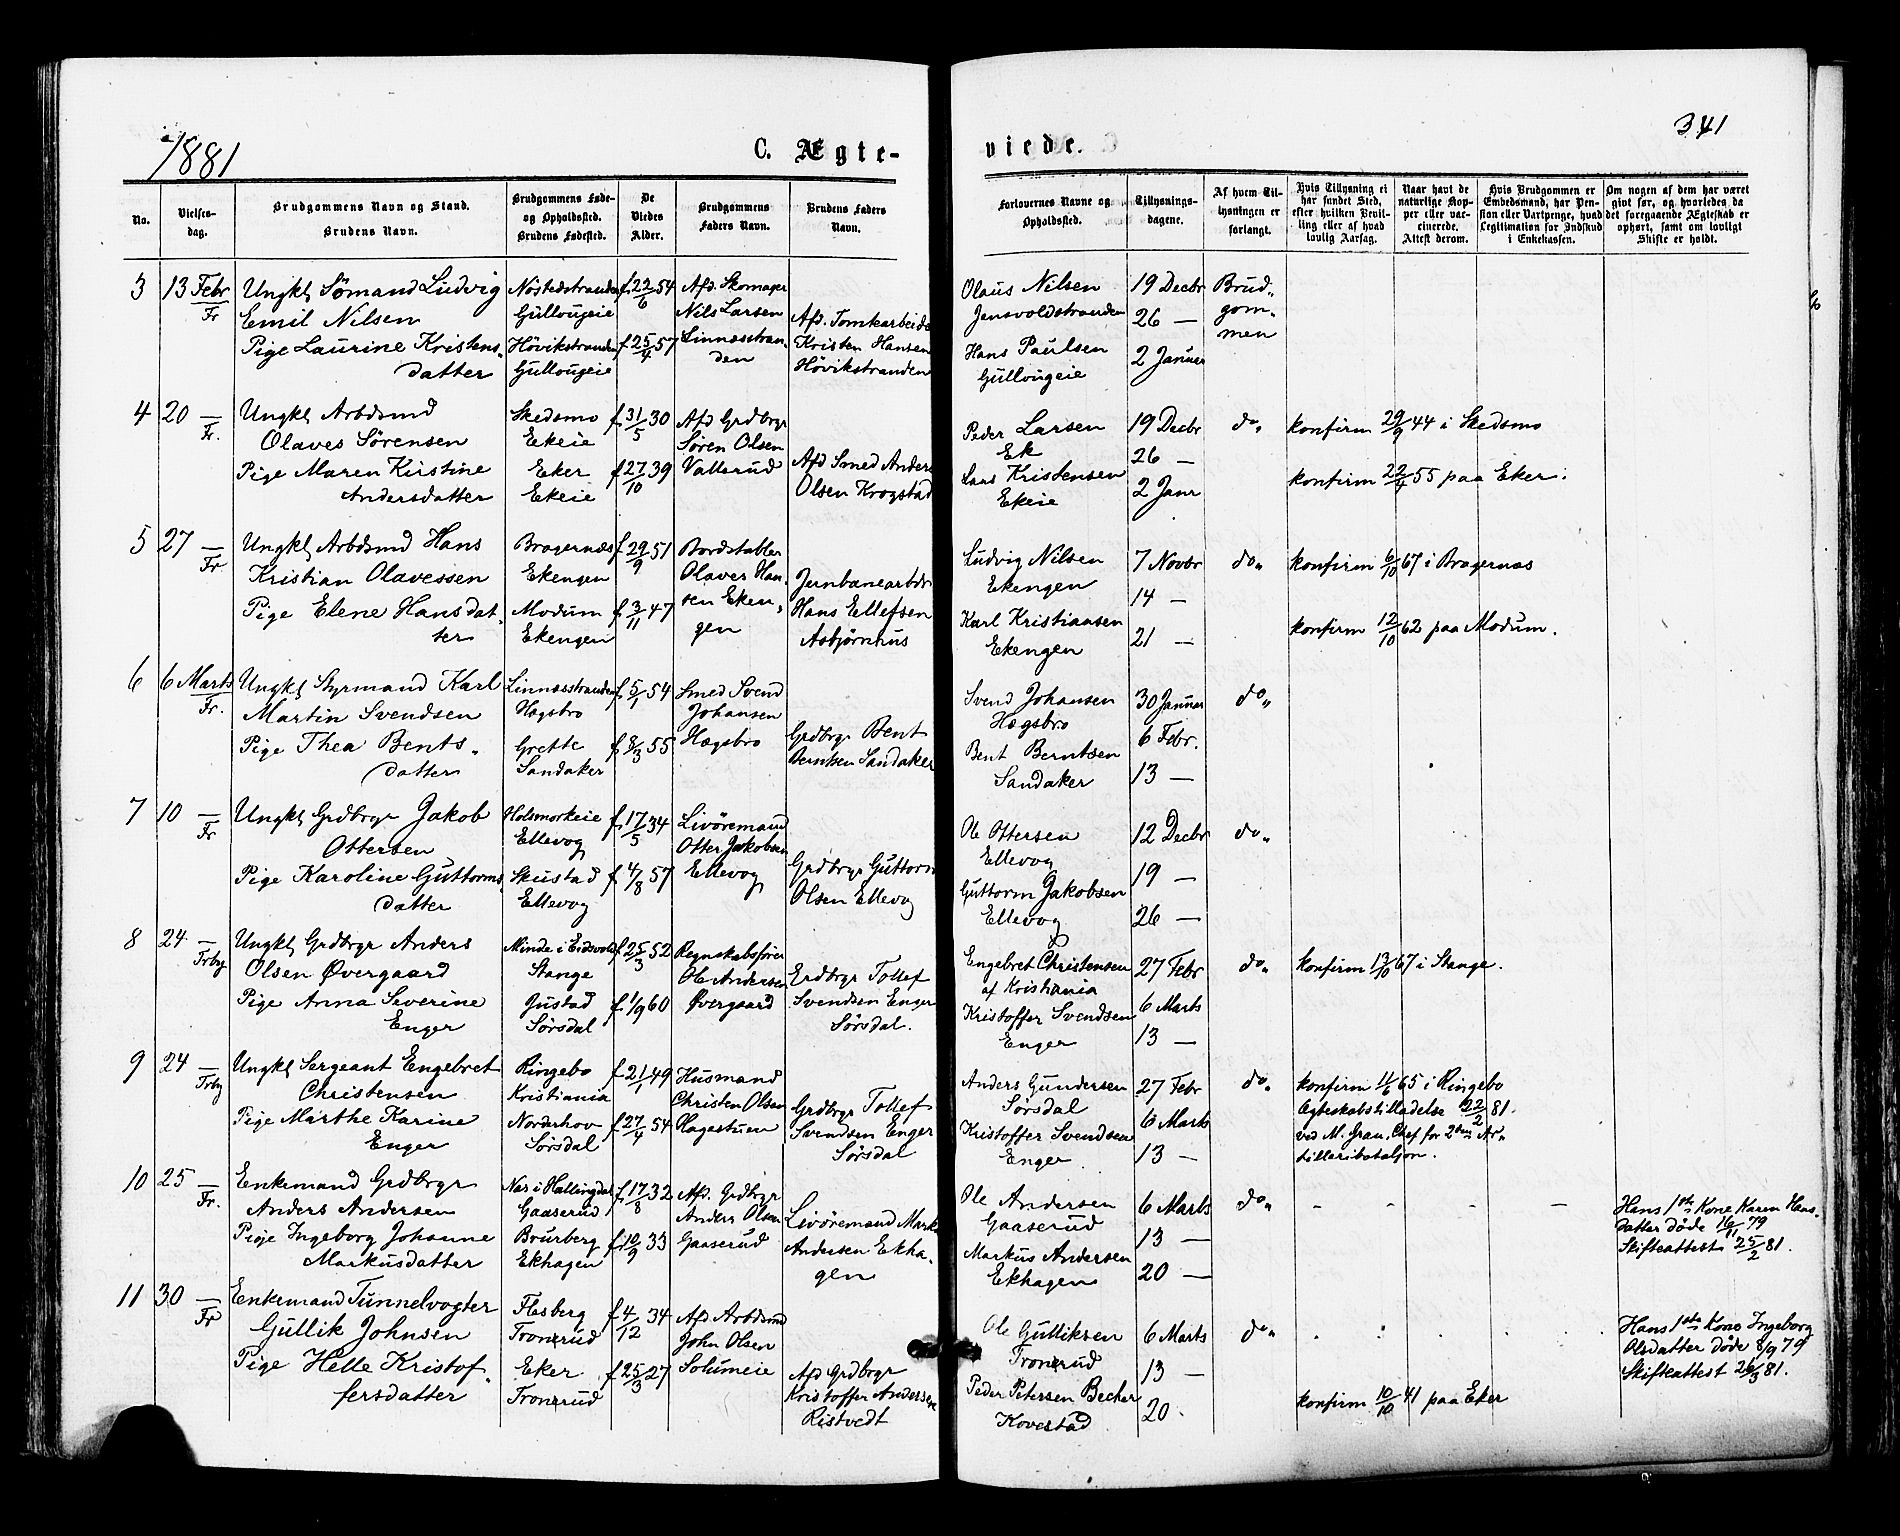 1881
C. Ægte-
viede.
341
No.
Vielses-
dag.
Brudgommens Navn og Stand.
Brudens Navn.
Brudgommens Føde-
og Opholdssted.
Brudens Fødested.
De
Viedes
Alder.
Brudgommens
Faders Navn.
Brudens Faders
Navn.
Forlovernes Navne og
Opholdssted.
Tillysnings-
dagene.
Af hvem Til-
lysningen er
forlangt.
Hvis Tillysning ei
har fundet Sted,
efter hvilken Bevil-
ling eller af hvad
lovlig Aarsag.
Naar havt de
naturlige Kop-
per eller vac-
cinerede.
Attest derom.
Hvis Brudgommen er
Embedsmand, har Pen-
sion eller Vartpenge, hvad
Legitimation for Indskud
i Enkekassen.
Om nogen af dem har været
givt før, og hvorledes da
det foregaaende Ægteskab er
ophørt, samt om lovligt
Skifte er holdt.
3
13 Febr
Fr
Ungkl Sømand Ludvig
Emil Nilsen
Pige Laurine Kristens-
datter
Nøstedstranden
Gullougeie
Høvikstranden
Gullougeie
f 22/6 54
f 25/4 57
Afd. Skomager
Nils Larsen
Linnæsstran-
den
Afd. Tomtearbeider
Kristen Hansen
Høvikstranden
Olaus Nilsen
Jensvoldstranden
Hans Paulsen
Gullougeie
19 Decbr
26 —
2 Januar
Brud-
gom-
men
4
20 —
Fr.
Ungkl Arbdsmd
Olaves Sørensen
Pige Maren Kirstine
Andersdatter
Skedsmo
Ekeie
Eker
Ekeie
f 31/5 30
f 27/10 39
Afd Grdbrgr
Søren Olsen
Vallerud
Afd Smed Anders
Olsen Krogstad
Peder Larsen
Ek
Lars Kristensen
Ekeie
19 Decbr
26 —
2 Janr
do.
konfirm 29/9 44 i Skedsmo
konfirm 22/4 55 paa Eker.
5
27 —
Fr
Ungkl Arbdsmd Hans
Kristian Olavessen
Pige Elene Hansdat-
ter
Bragernæs
Ekengen
Modum
Ekengen
f 29/9 51
f 3/11 47
Bordstabler
Olaves Han-
sen Eken-
gen
Jernbanearbdr
Hans Ellefsen
Asbjørnhus
Ludvig Nilsen
Ekengen
Karl Kristiansen
Ekengen
7 Novbr
14 —
21 —
do.
konfirm 6/10 67 i Bragernæs
konfirm 12/10 62 paa Modum.
6
6 Marts
Fr.
Ungkl Styrmand Karl
Martin Svendsen
Pige Thea Bents-
datter
Linnæsstranden
Hægsbro
Grette
Sandaker
f 5/1 54
f 8/3 55
Smed Svend
Johansen
Hægsbro
Grdbrgr Bent
Berntsen Sandaker
Svend Johansen
Hægsbro
Bent Berntsen
Sandaker
30 Januar
6 Febr.
13 —
do.
7
10 —
Fr
Ungkl Grdbrgr Jakob
Ottersen
Pige Karoline Guttorms
datter
Holsmorkeie
Ellevog
Skustad
Ellevog
f 17/5 34
f 4/8 57
Livøremand
Otter Jakobsen
Ellevog
Grdbrgr Guttorm
Olsen Ellevog
Ole Ottersen
Ellevog
Guttorm Jakobsen
Ellevog
12 Decbr
19 —
26 —
do.
8
24 —
Frbg
Ungkl Grdbrgr Anders
Olsen Øvergaard
Pige Anna Severine
Enger
Minde i Eidsvold
Stange
Gustad
Sørsdal
f 25/3 52
f 1/9 60
Regnskabsfører
Ole Andersen
Øvergaard
Grdbrgr Tollef
Svendsen Enger
Sørsdal.
Engebret Christensen
af Kristiania
Kristoffer Svendsen
Enger
27 Febr
6 Marts
13 —
do.
konfirm 13/10 67 i Stange.
9
24 —
Frbg
Ungkl Sergeant Engebret
Christensen
Pige Marthe Karine
Enger
Ringebo
Kristiania
Norderhov
Sørsdal
f 21/1 49
f 27/4 54
Husmand
Christen Olsen
Hagastuen
Grdbrgr Tollef
Svendsen Enger
Sørsdal
Anders Gundersen
Sørsdal
Kristoffer Svendsen
Enger
27 Febr
6 Marts
13 —
do.
konfirm 11/6 65 i Ringebo
Ægteskabstilladelse 22/2 81.
ved M. Gran, Chef for 2den Ar-
tilleribataljon.
10
25 —
Fr.
Enkemand Grdbrgr
Anders Andersen
Pige Ingeborg Johanne
Markusdatter
Næs i Hallingdal
Gaaserud
Brurberg
Ekhagen
f 17/8 32
f 10/9 33
Afd. Grdbrgr
Anders Olsen
Gaaserud
Livøremand Markus
Andersen Ekha-
gen
Ole Andersen
Gaaserud
Markus Andersen
Ekhagen
6 Marts
13 —
20 —
do.
Hans 1ste Kone Karen Hans-
datter døde 16/11 79
Skifteattest 25/2 81.
11
30 —
Fr
Enkemand Tunnelvogter
Gullik Johnsen
Pige Helle Kristof-
fersdatter
Flesberg
Tronrud
Eker
Tronrud
f 4/12 34
f 25/3 27
Afd Arbdsmd
John Olsen
Solumeie
Afd Grdbrgr
Kristoffer Anderssen
Ristvedt
Ole Gulliksen
Tronrud
Peder Petersen Becker
Kovestad
6 Marts
13 —
20.
do.
konfirm 10/10 41 paa Eker
Hans 1ste Kone Ingeborg
Olsdatter døde 8/9 79
Skifteattest 26/3 81.